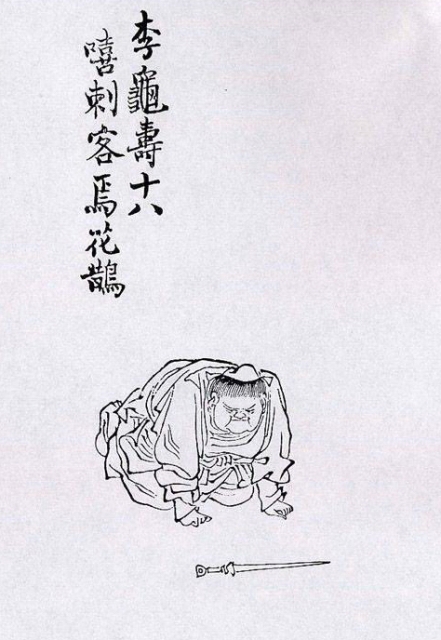 李龜壽十八
嘻刺客焉花鵲